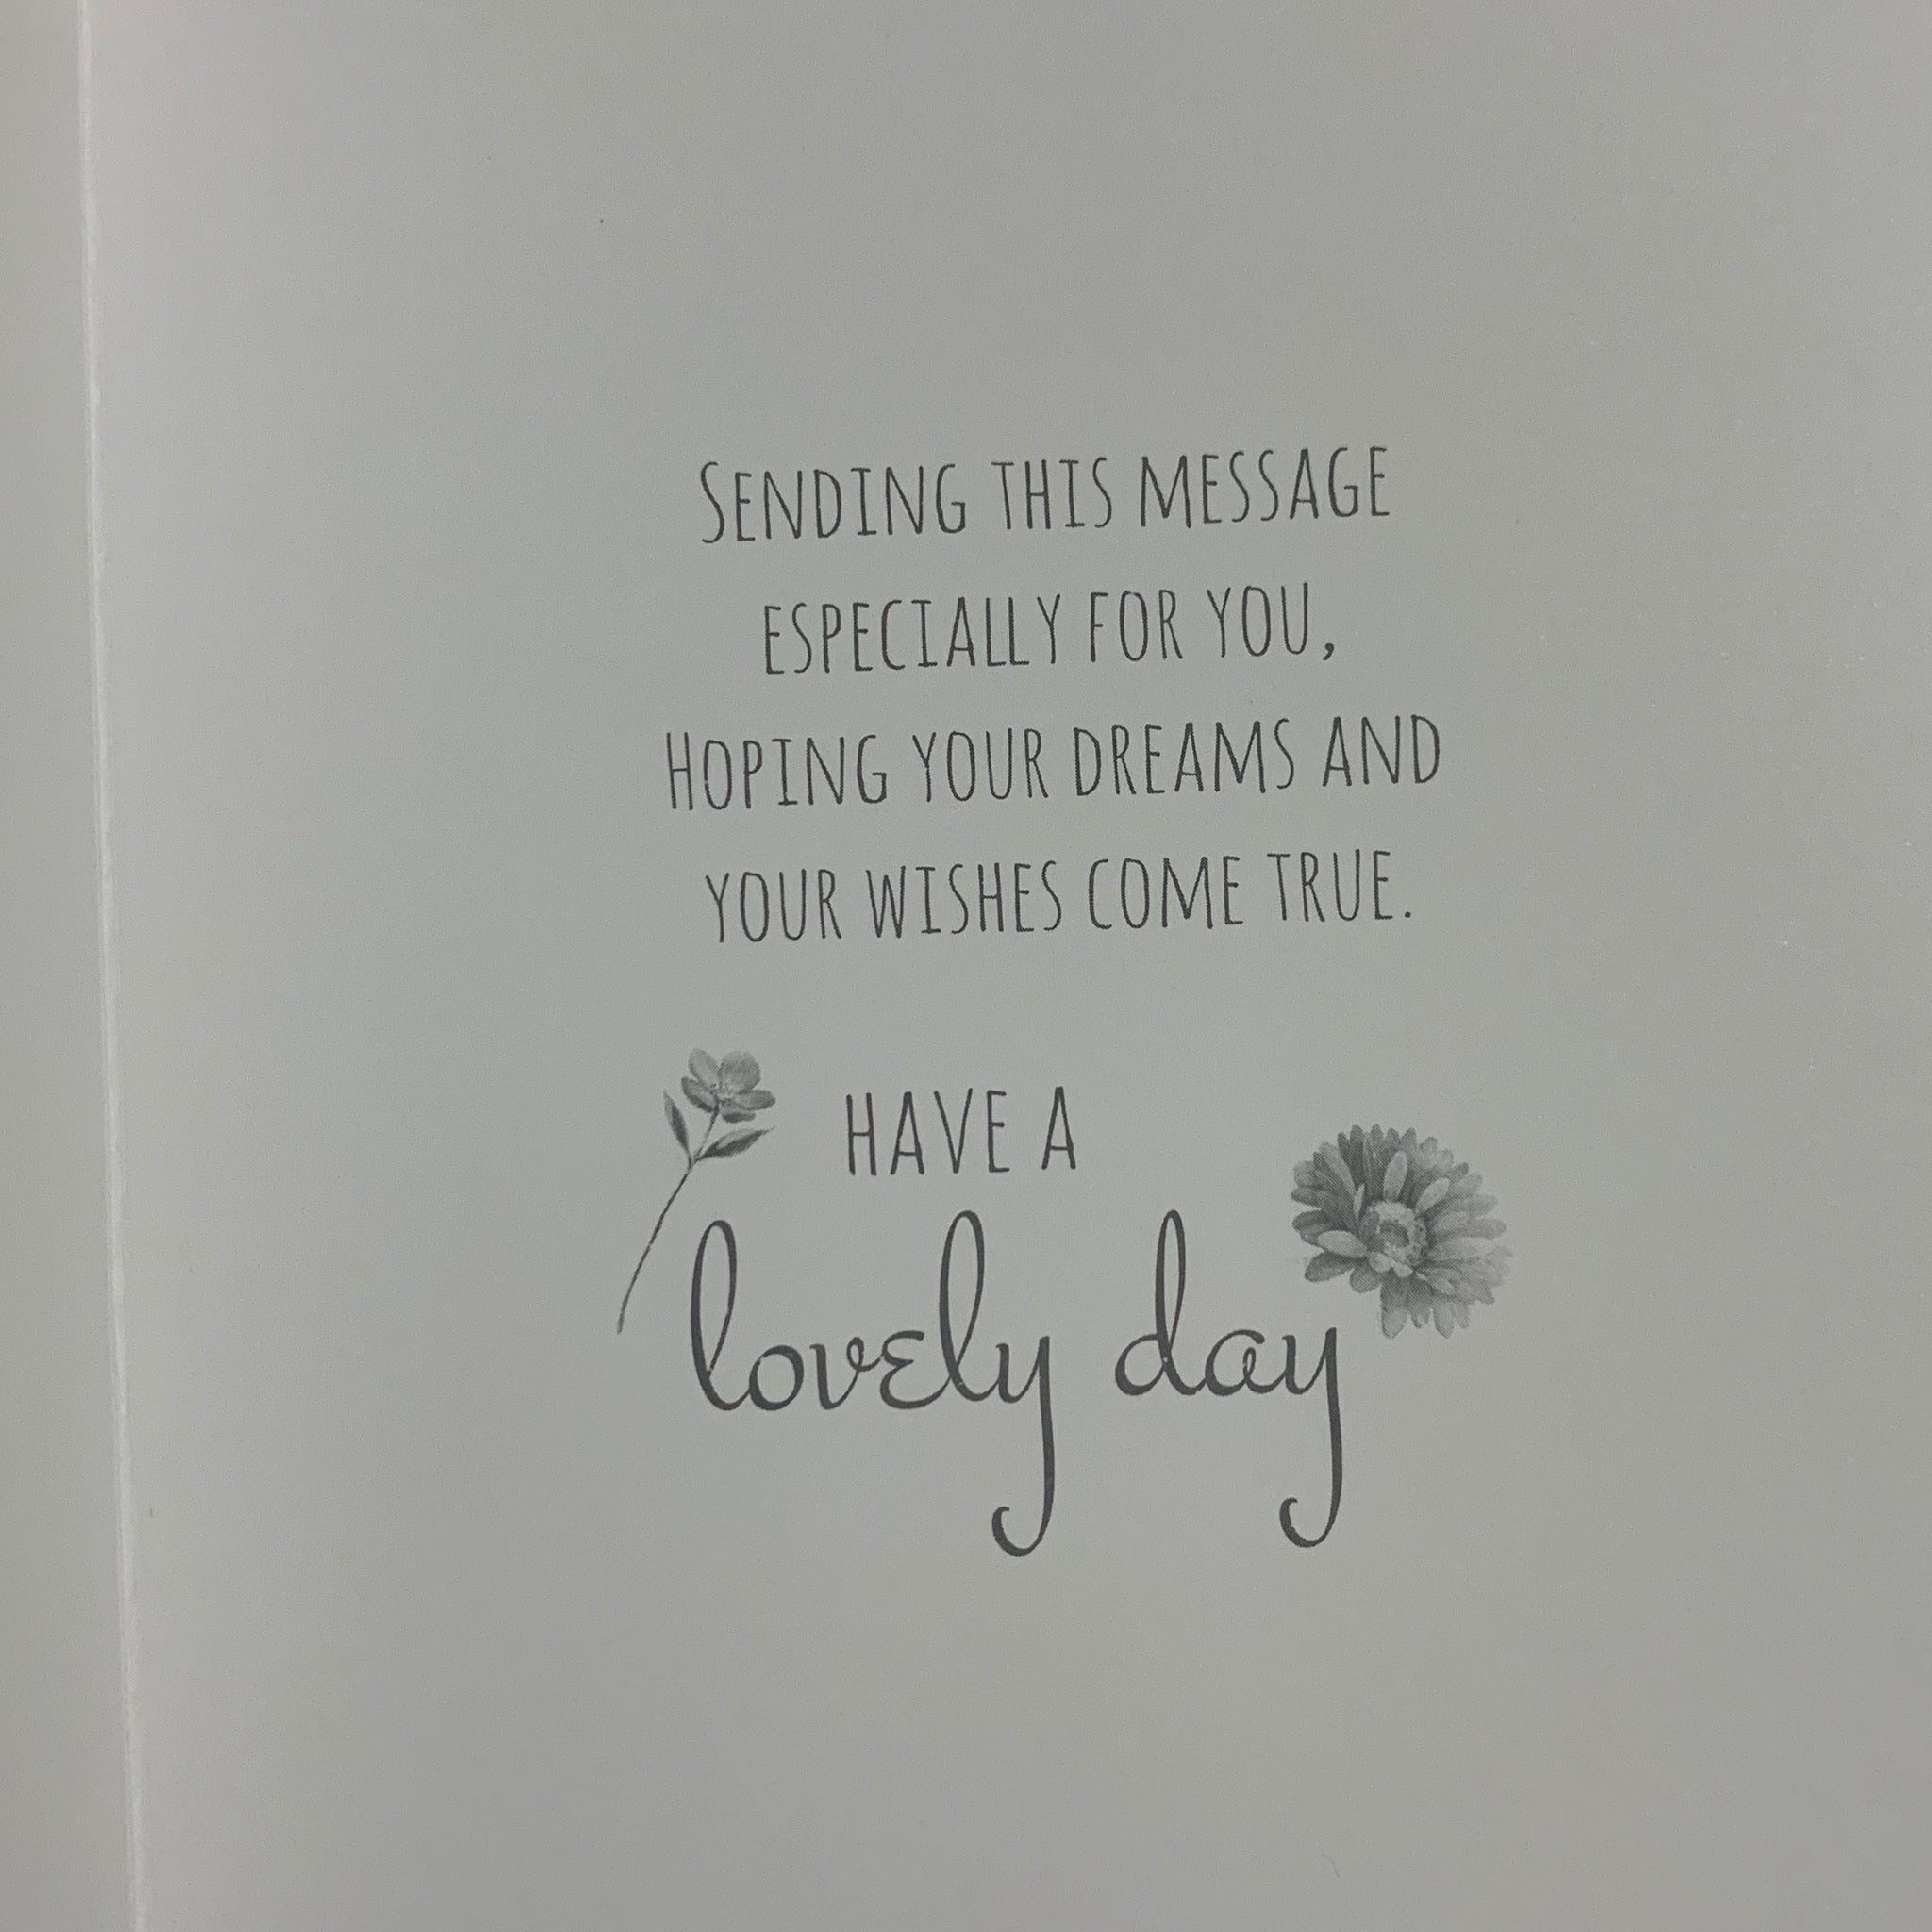 SENDING THIS MESSAGE
ESPECIALLY FOR YOU,
HOPING YOUR DREAMS AND
YOUR WISHES COME TRUE.
HAVE A
lovely day